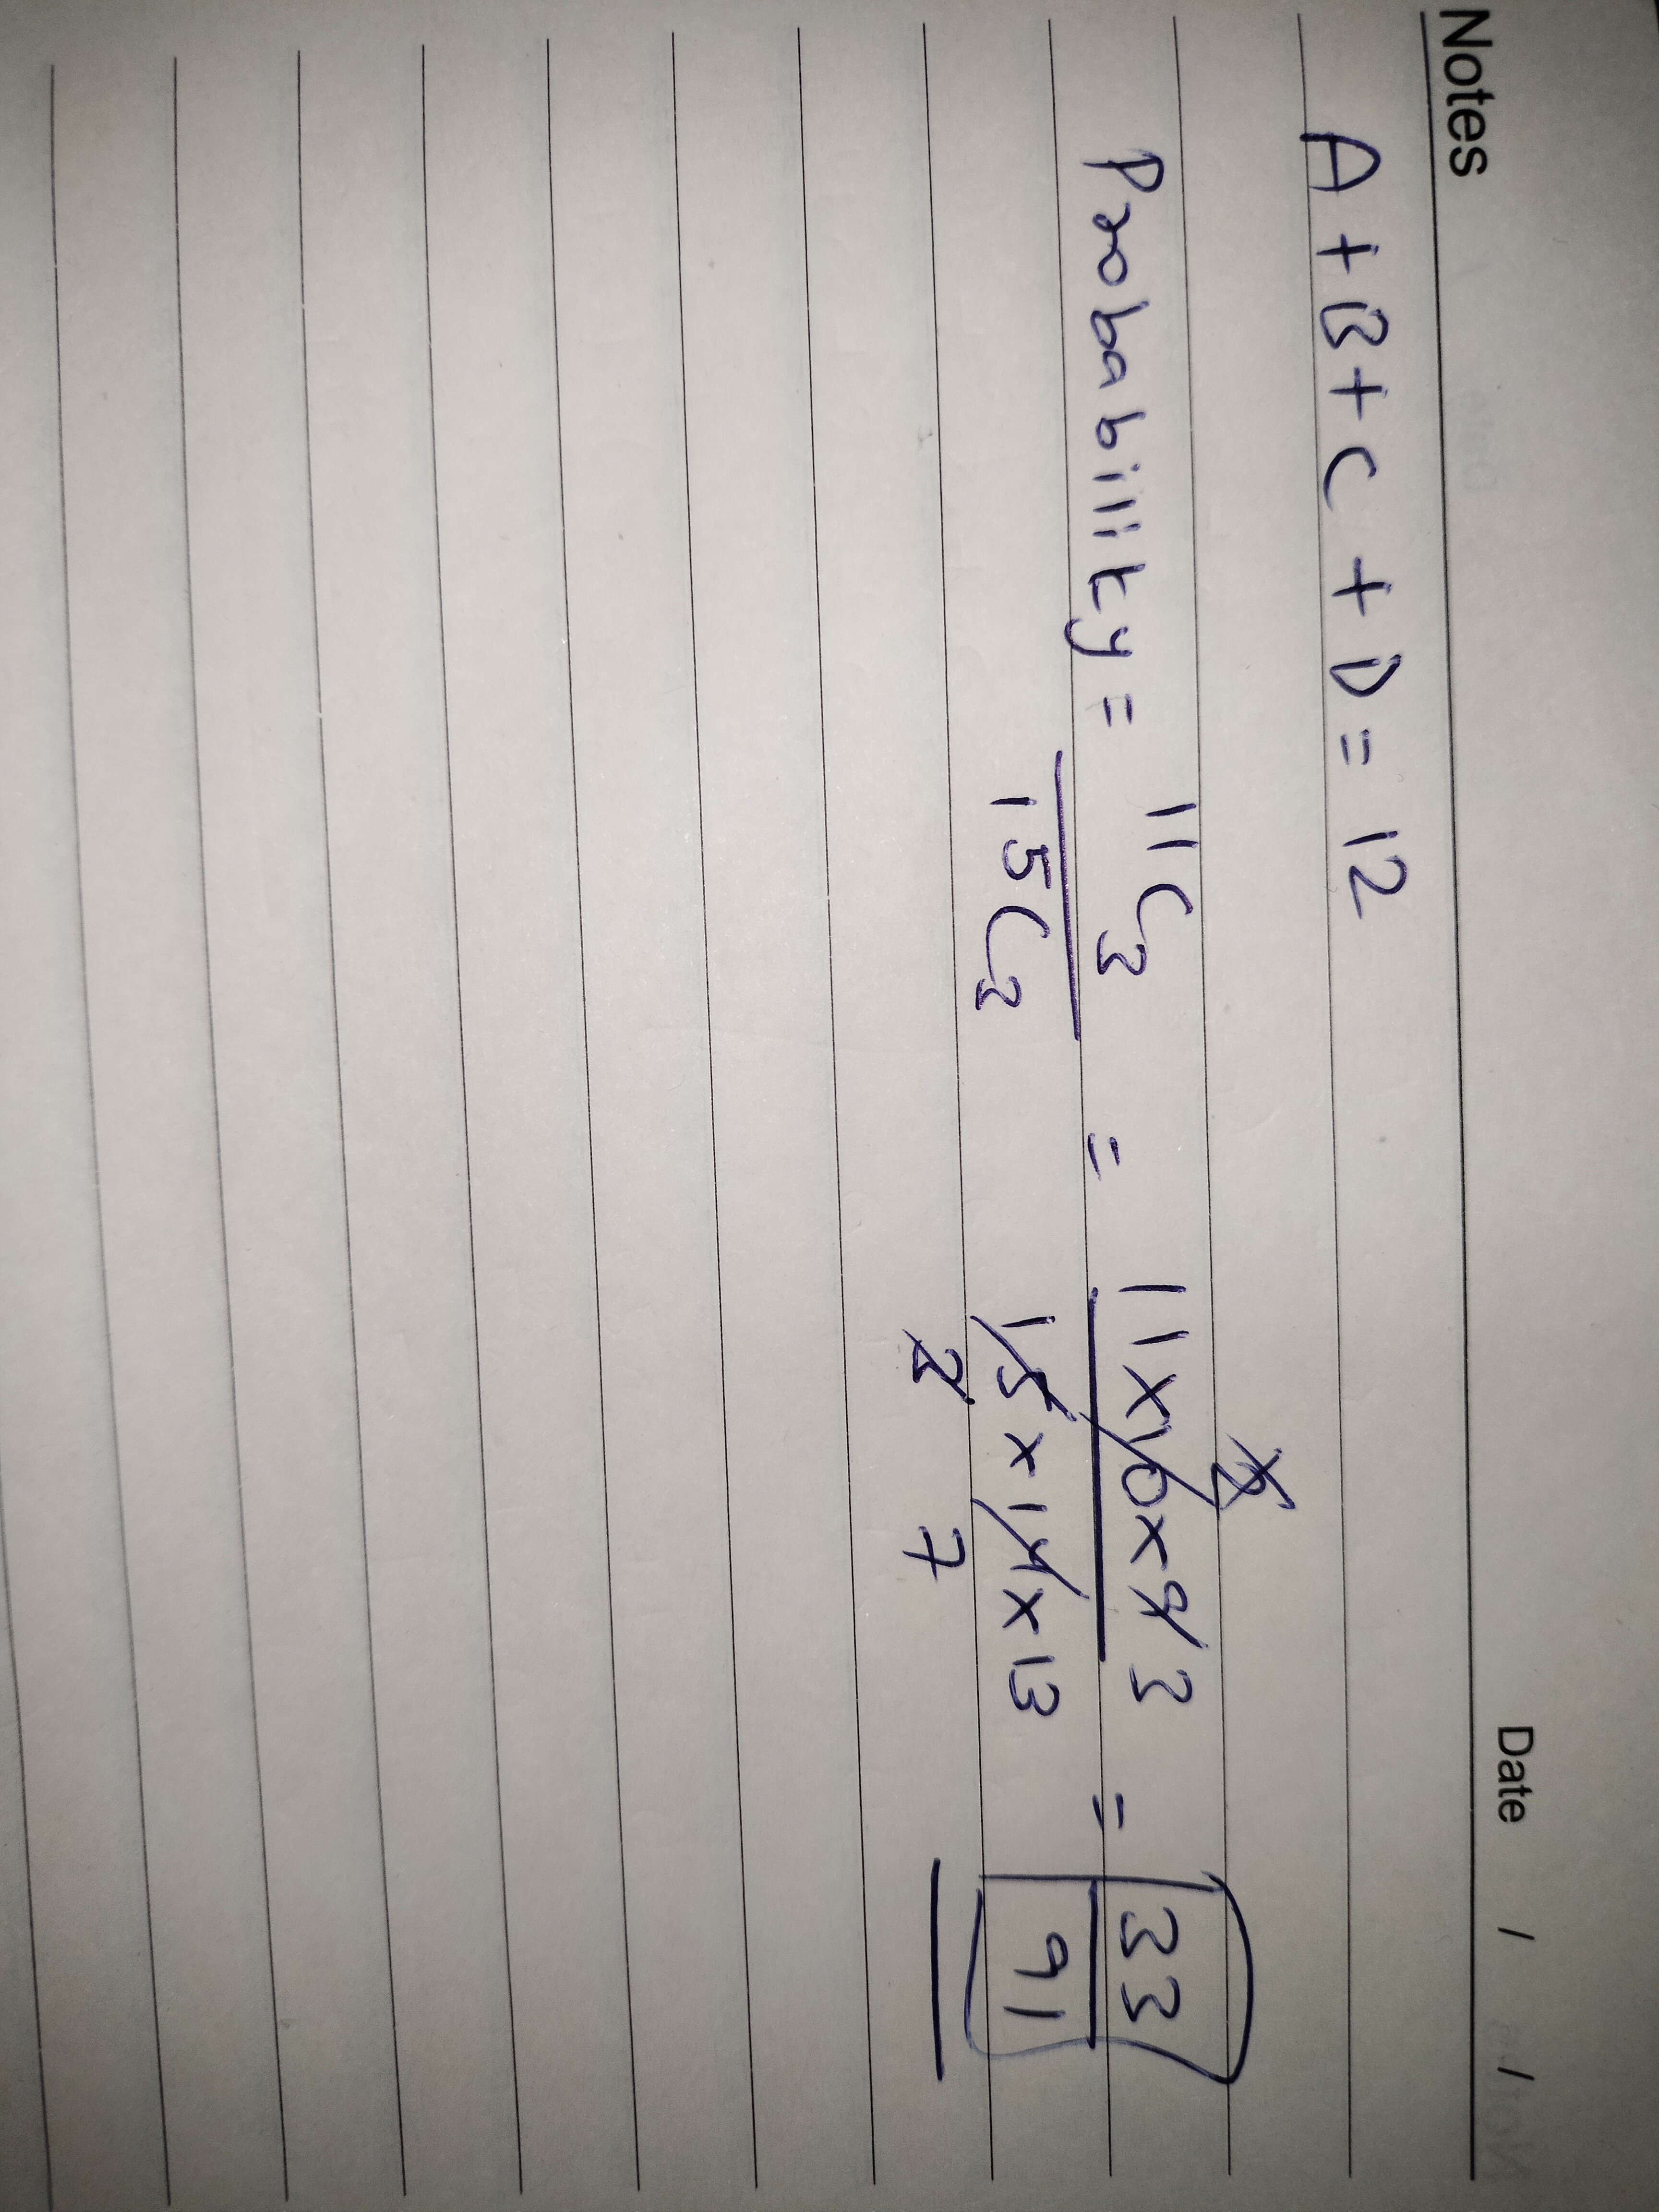 Notes Date / /
A + B + C + D = 12
Probability = 11C3 / 15C3 = 11 x 10 x 9 3 / 15 x 14 x 13 = 33 / 91
2
3 7